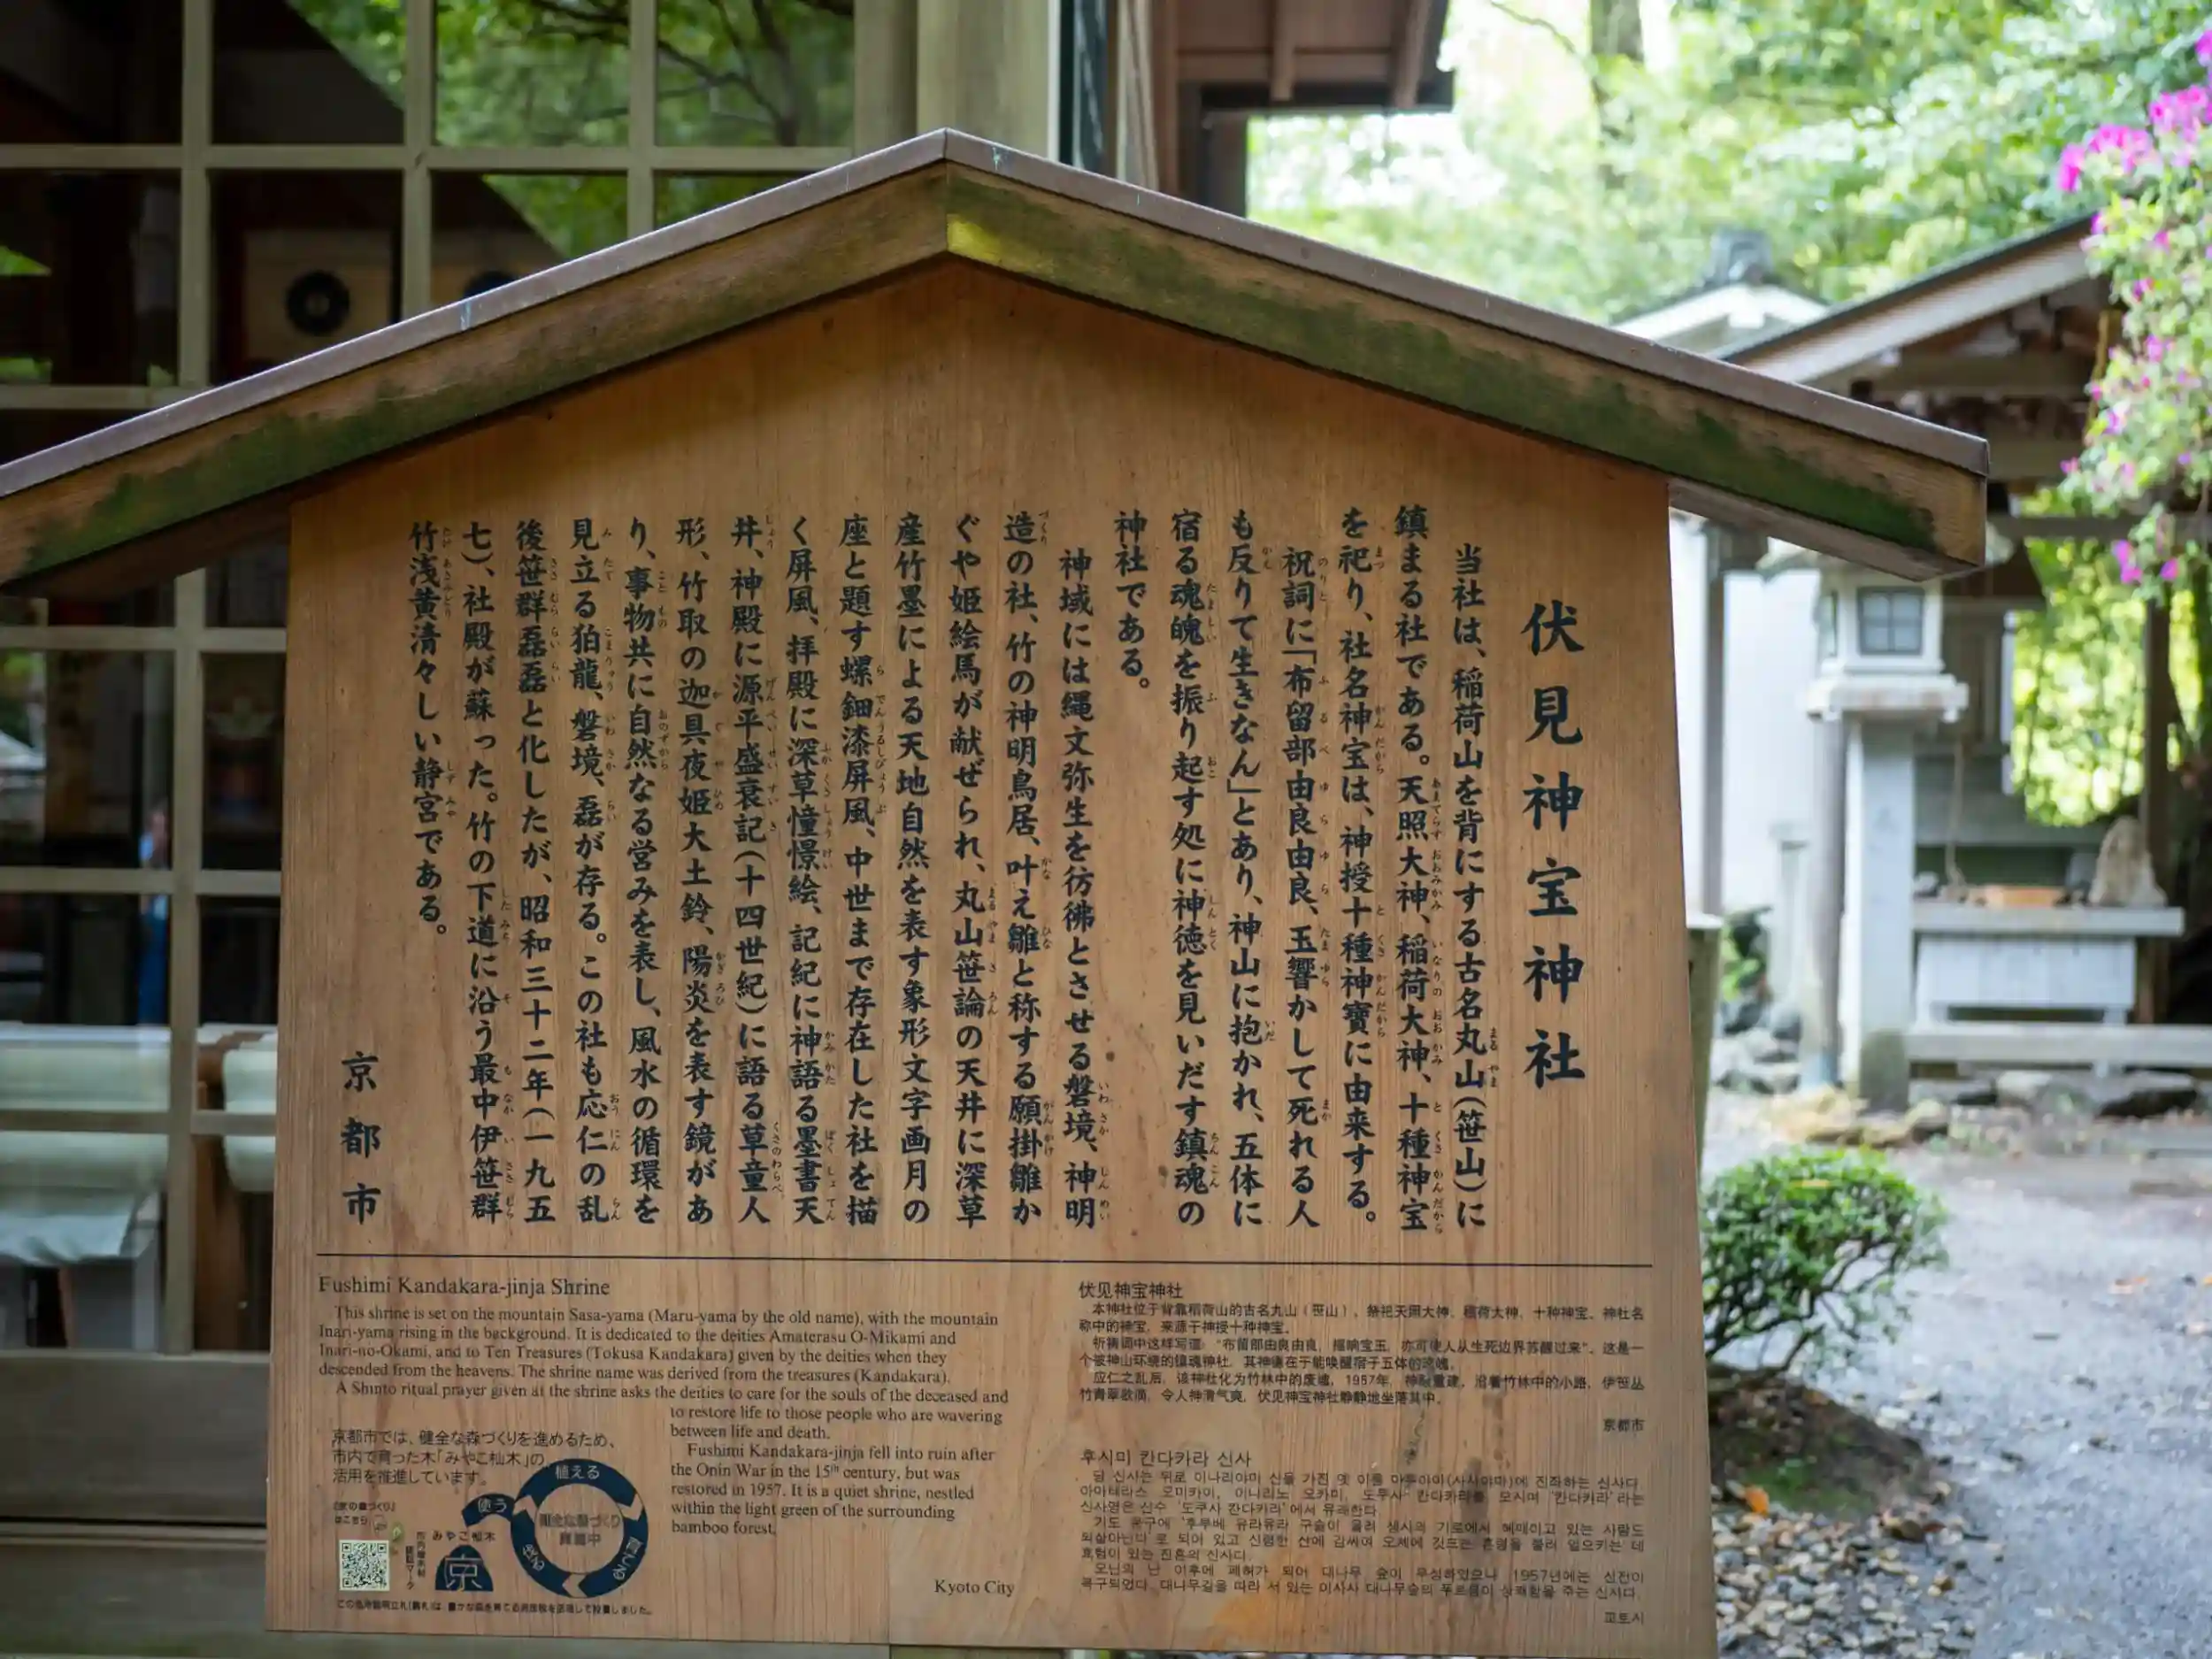 伏見神宝神社
当社は、稲荷山を背にする古名丸山(笹山)に
鎮まる社である。天照大神、稲荷大神、十種神宝
を祀り、社名神宝は、神授十種神寶に由来する。
祝詞に「布留部由良由良、玉響かして死れる人
も反りて生きなん」とあり、神山に抱かれ、五体に
宿る魂魄を振り起す処に神徳を見いだす鎮魂の
神社である。
神域には縄文弥生を彷彿とさせる磐境、神明
造の社、竹の神明鳥居、叶え雛と称する願掛雛か
ぐや姫絵馬が献ぜられ、丸山笹論の天井に深草
産竹墨による天地自然を表す象形文字画月の
座と題す螺鈿漆屏風、中世まで存在した社を描
く屏風、拝殿に深草憧憬絵、記紀に神語る墨書天
井、神殿に源平盛衰記(十四世紀)に語る草童人
形、竹取の迦具夜姫大土鈴、陽炎を表す鏡があ
り、事物共に自然なる営みを表し、風水の循環を
見立る狛龍、磐境、磊が存る。この社も応仁の乱
後笹群磊磊と化したが、昭和三十二年(一九五
七)、社殿が蘇った。竹の下道に沿う最中伊笹群
竹浅黄清々しい静宮である。
京都市
Fushimi Kandakara-jinja Shrine
This shrine is set on the mountain Sasa-yama (Maru-yama by the old name), with the mountain
Inari-yama rising in the background. It is dedicated to the deities Amaterasu O-Mikami and
Inari-no-Okami, and to Ten Treasures (Tokusa Kandakara) given by the deities when they
descended from the heavens. The shrine name was derived from the treasures (Kandakara).
A Shinto ritual prayer given at the shrine asks the deities to care for the souls of the deceased and
to restore life to those people who are wavering
between life and death.
Fushimi Kandakara-jinja fell into ruin after
the Onin War in the 15th century, but was
restored in 1957. It is a quiet shrine, nestled
within the light green of the surrounding
bamboo forest.
Kyoto City
京都市では、健全な森づくりを進めるため、
市内で育った木「みやこ杣木」の
活用を推進しています。
植える
使う
みやこ杣木
京
伏见神宝神社
本神社位于背靠稻荷山的古名丸山(笹山)、祭祀天照大神、稻荷大神、十种神宝。神社名
称中的神宝，来源于神授十种神宝。
祈祷词中这样写道：“布留部由良由良，摇响宝玉，亦可使人从生死边界苏醒过来”。这是一
个被神山环绕的镇魂神社，其神德在于能唤醒宿于五体的魂魄。
应仁之乱后，该神社化为竹林中的废墟，1957年，神殿重建。沿着竹林中的小路，伊笹丛
竹青翠欲滴，令人神清气爽，伏见神宝神社静静地坐落其中。
京都市
후시미 칸다카라 신사
교토시